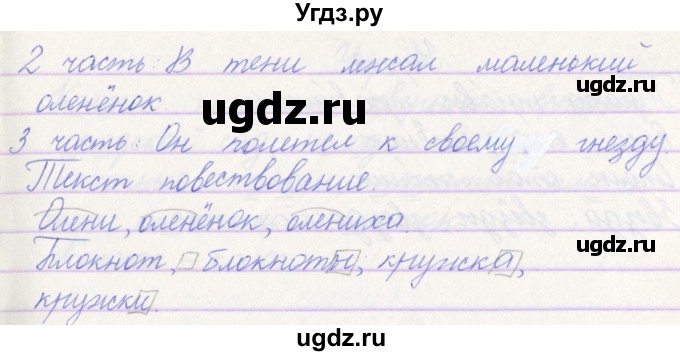 Угдз.ру
2 часть: В тени лежал маленький
оленёнок
ugdz.ru
3 часть: Он полетел к своему гнезду.
Текст повествование.
Олени, оленёнок, олениха.
Блокнот, блокноты, кружка,
кружки.
ugdz.ru
ugdz.ru